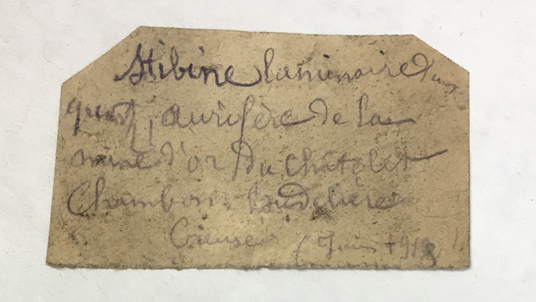 Stibine laminaire dans
quartz aurifère de la
mine d'or du Châtelet
Chambon
Creuse (Juin 1913)